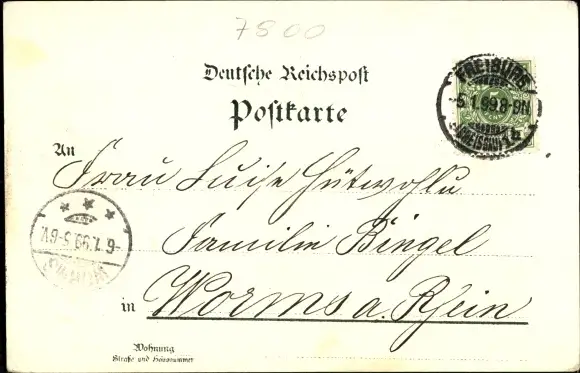 7800
Deutsche Reichspost
Postkarte
FREIBURG
5.1.99.8-9N
(BREISGAU) 1b
5
An
Frau Luise Hütwohlu
Familie Bingel
in Worms a. Rhein
6.1.99.5-6V.
Wohnung
Straße und Hausnummer